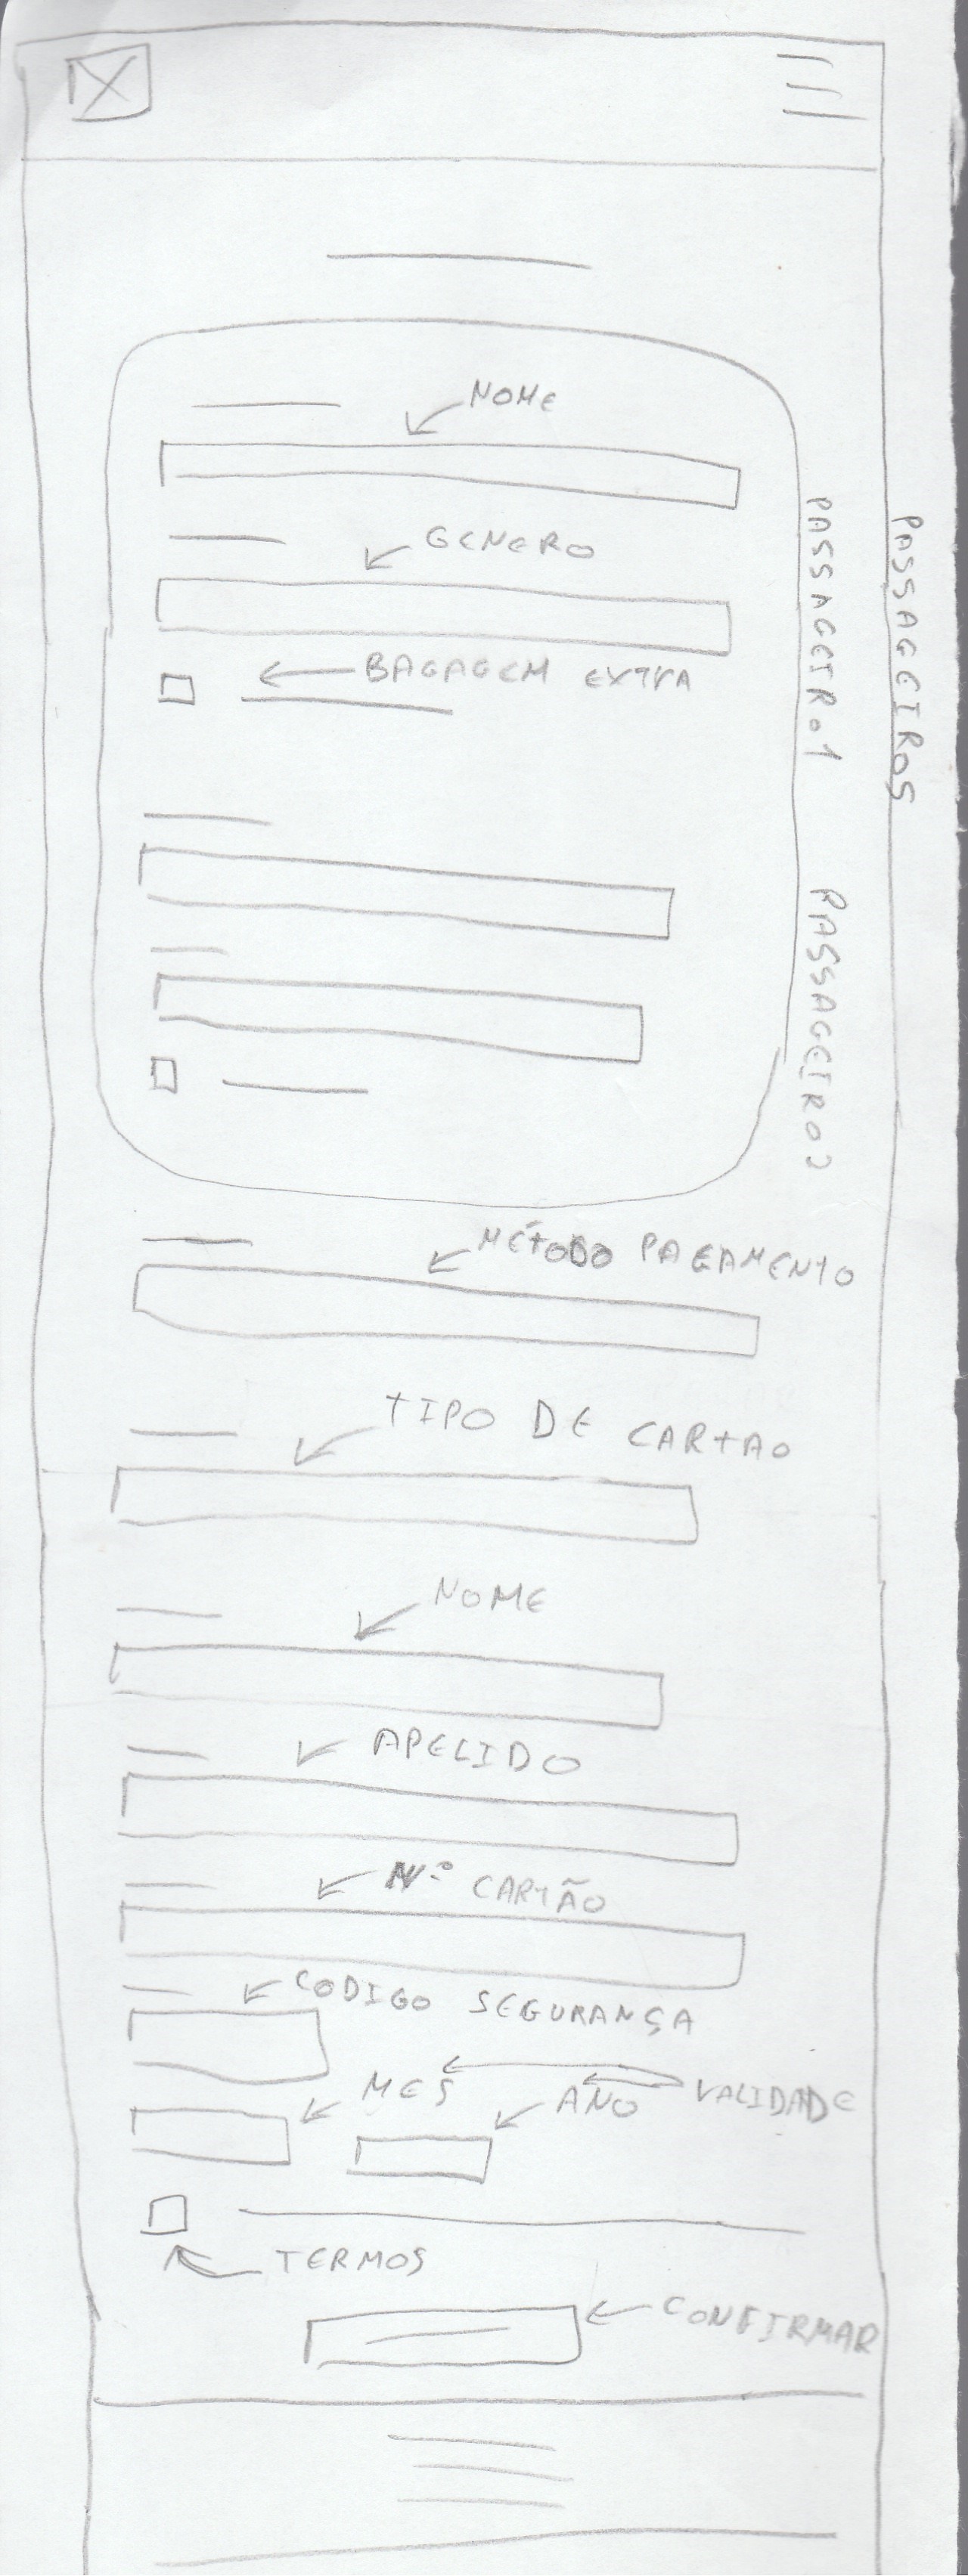 NOME
GENERO
BAGAGEM EXTRA
PASSAGEIRO 1
PASSAGEIROS
PASSAGEIRO 2
MÉTODO PAGAMENTO
TIPO DE CARTAO
NOME
APELIDO
Nº CARTÃO
CODIGO SEGURANÇA
MES
ANO
VALIDADE
TERMOS
CONFIRMAR